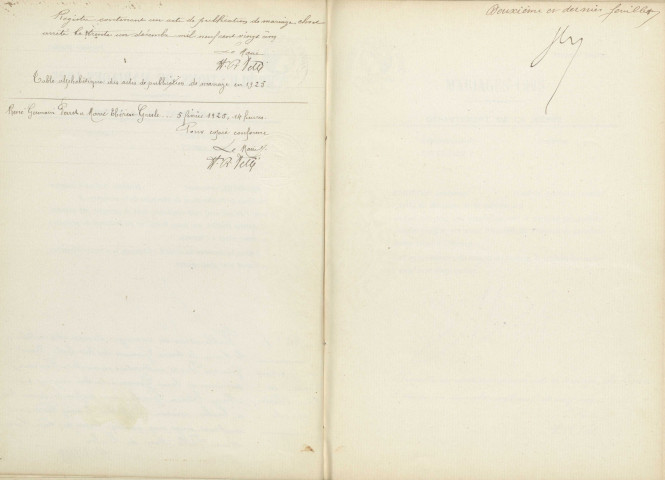 Registre contenant un acte de publication de mariage clos et
arrêté le trente un décembre mil neuf cent vingt cinq
Le Maire
Table alphabétique des actes de publication de mariage en 1925
René Germain Marie Thérèse 5 février 1925, 14 heures
Pour copie conforme
Le Maire
Deuxième et dernier feuillet